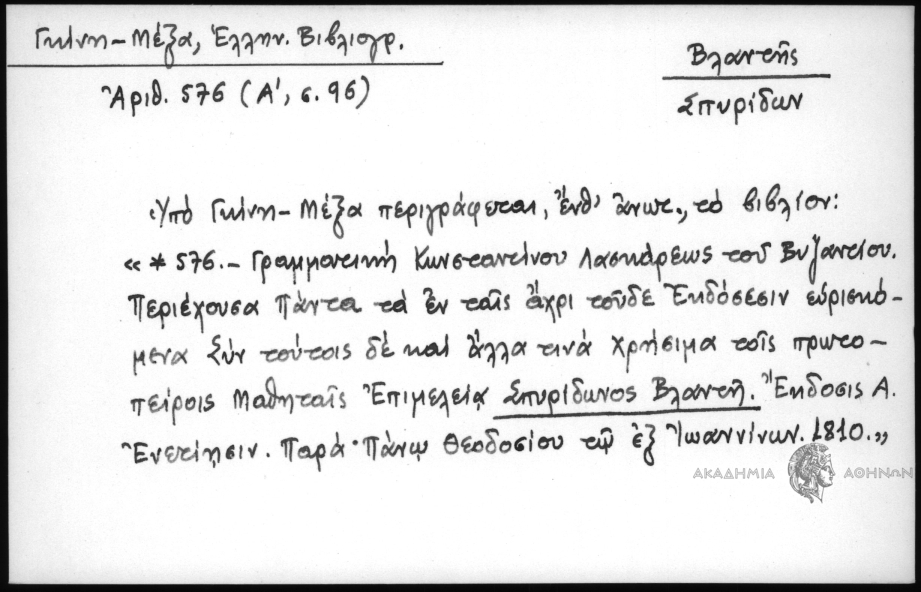 Γκίνη-Μέξα, Ἑλλην. Βιβλιογρ.
Ἀριθ. 576 (Α', σ. 96)
Βλαντῆς
Σπυρίδων
Ὑπό Γκίνη-Μέξα περιγράφεται, ἔνθ' ἄνωτ., τό βιβλίον:
«*576.- Γραμματική Κωνσταντίνου Λασκάρεως τοῦ Βυζαντίου.
Περιέχουσα Πάντα τά ἐν ταῖς ἄχρι τοῦδε Ἐκδόσεσιν εὑρισκό-
μενα Σύν τούτοις δέ καί ἄλλα τινά χρήσιμα τοῖς πρωτο-
πείροις Μαθηταῖς Ἐπιμελείᾳ Σπυρίδωνος Βλαντῆ. Ἔκδοσις Α.
Ἐνετίησιν. Παρά Πάνῳ Θεοδοσίου τῷ ἐξ Ἰωαννίνων. 1810.»
ΑΚΑΔΗΜΙΑ ΑΘΗΝΩΝ